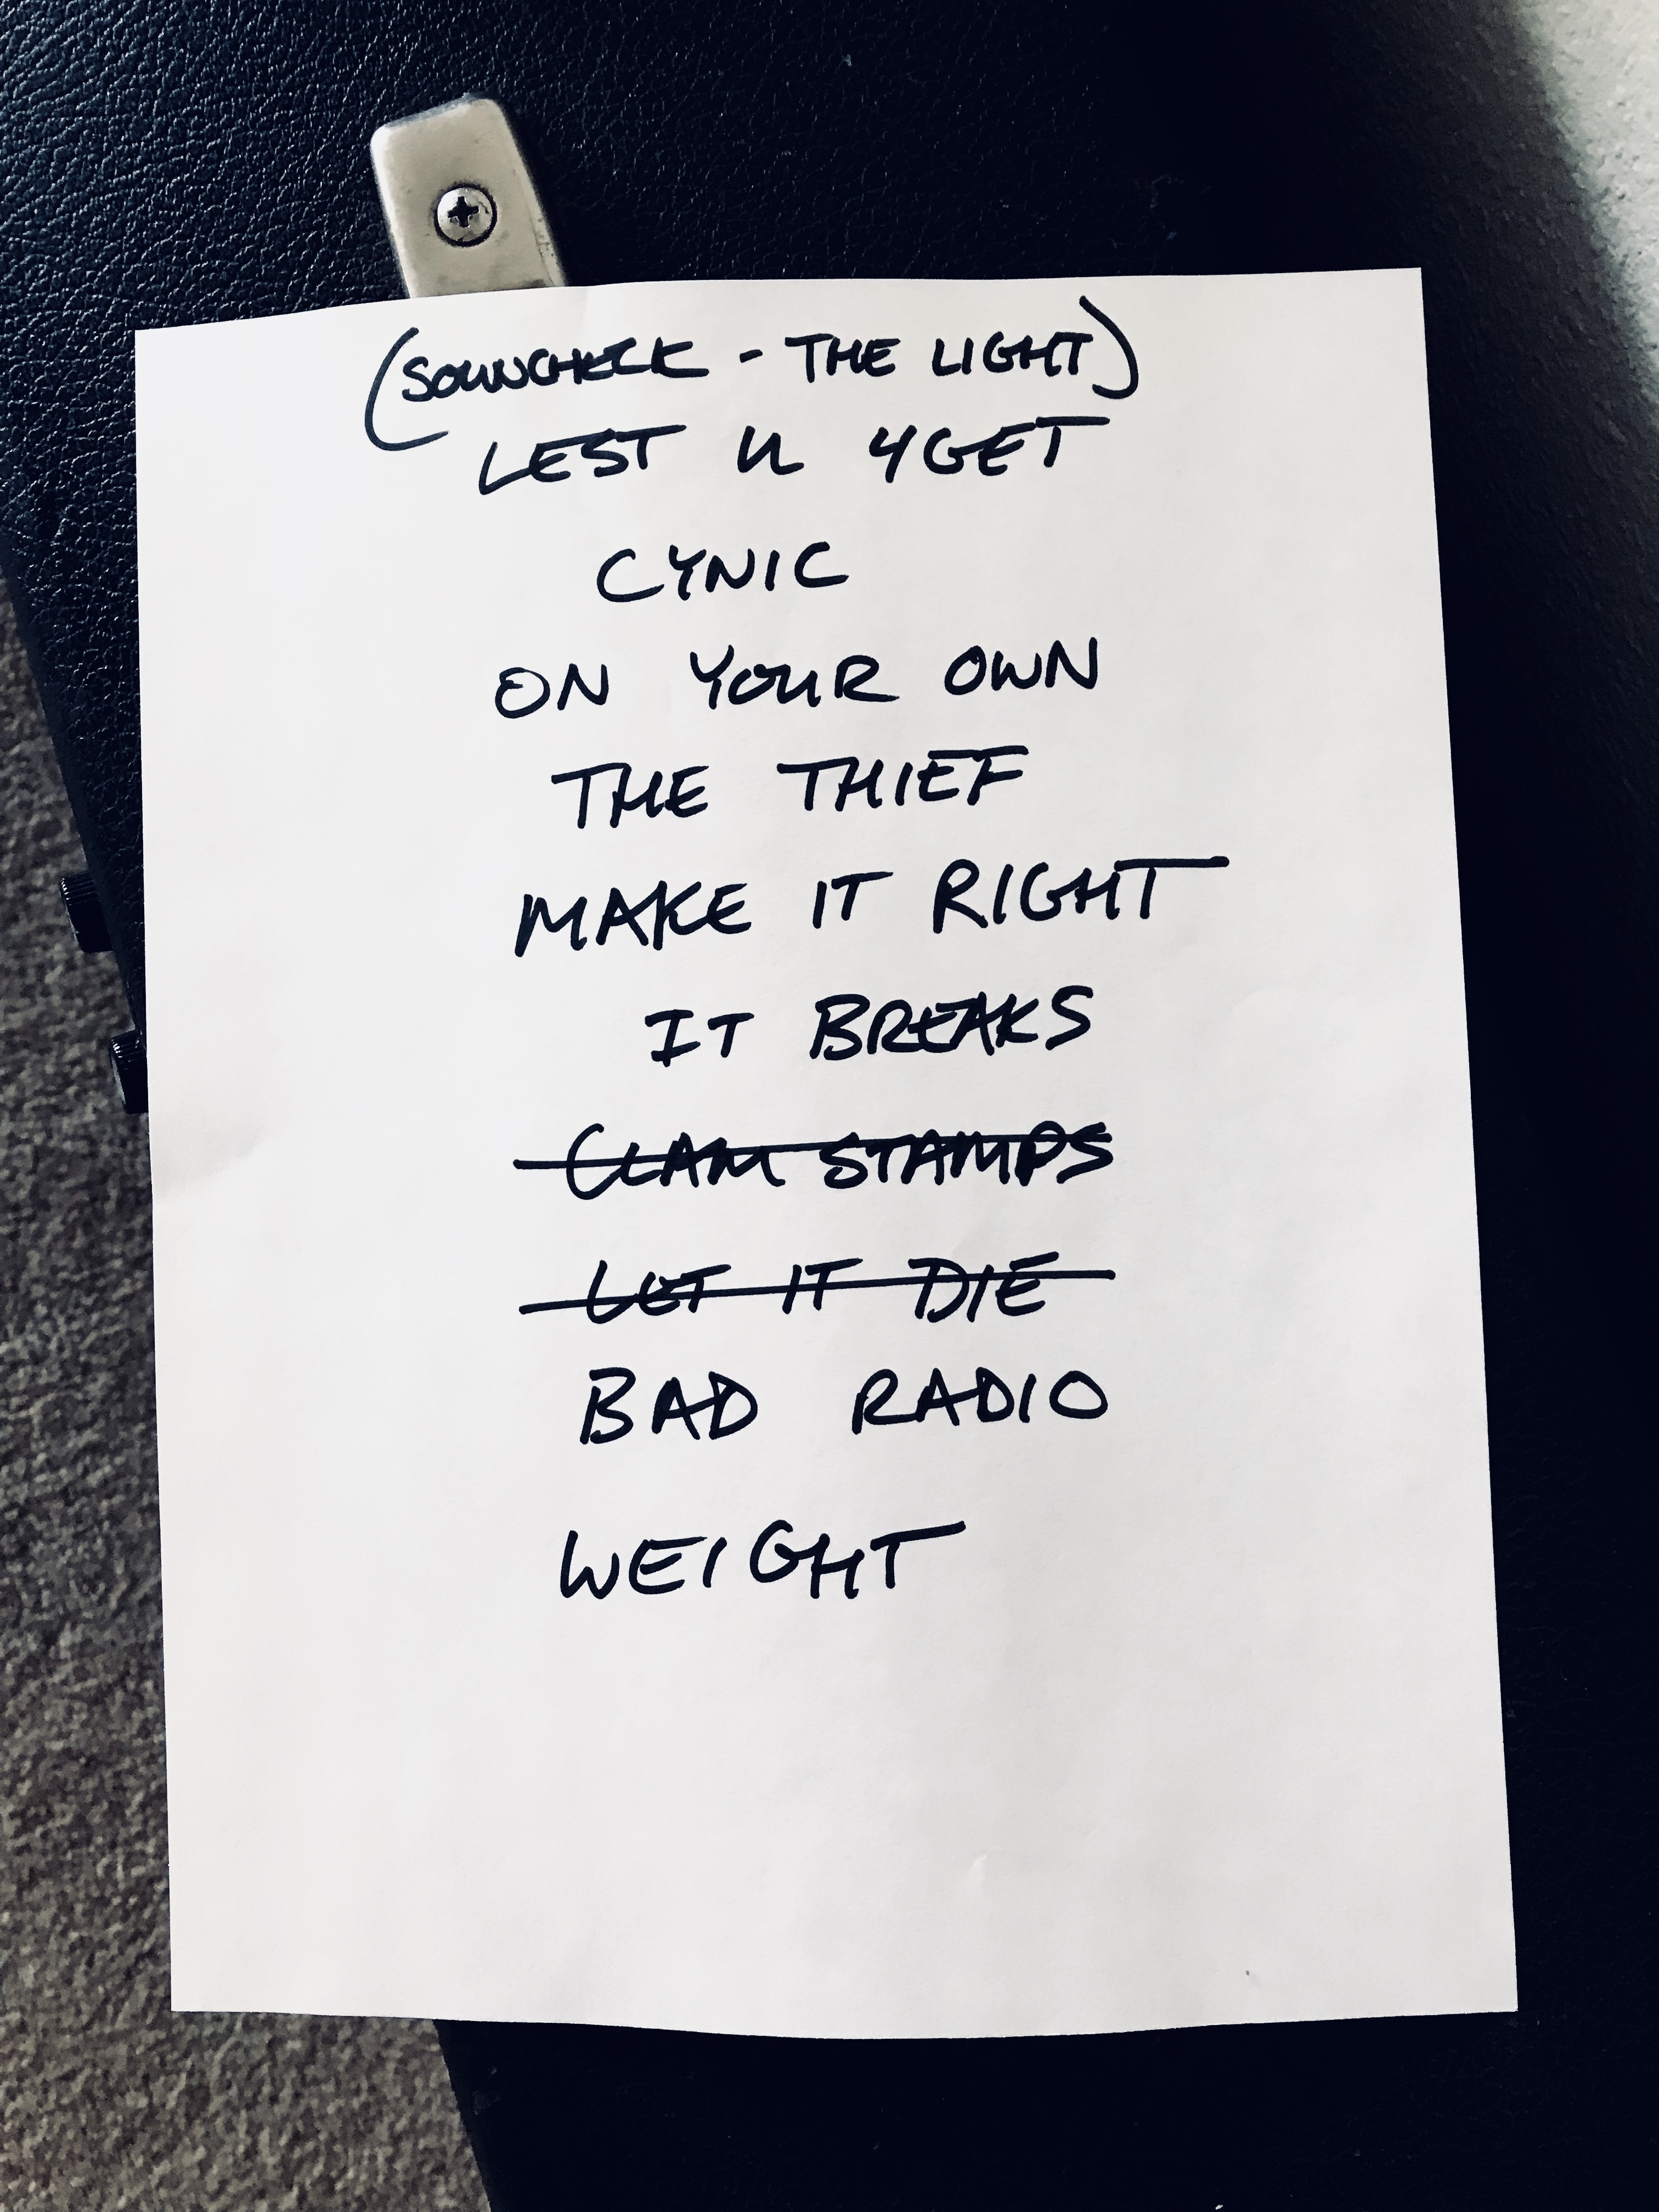 (SOUNCHECK - THE LIGHT)
LEST U 4GET
CYNIC
ON YOUR OWN
THE THIEF
MAKE IT RIGHT
IT BREAKS
CLAM STAMPS
LET IT DIE
BAD RADIO
WEIGHT